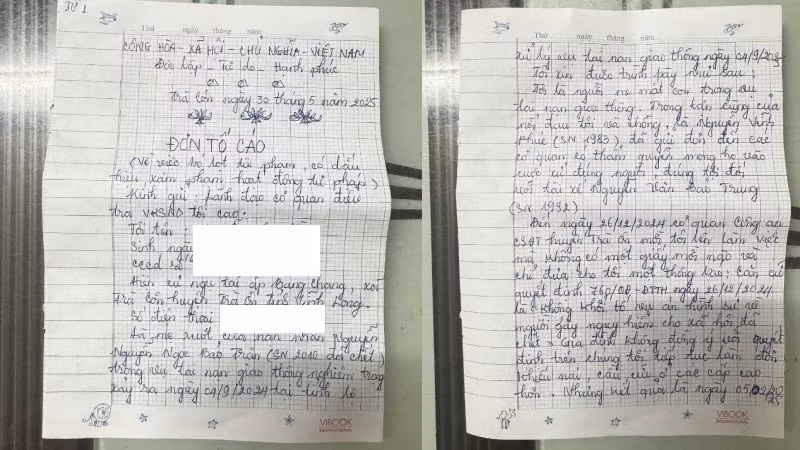 Tờ 1
Thứ ngày tháng năm
CỘNG HÒA - XÃ HỘI - CHỦ NGHĨA - VIỆT NAM
Độc lập - Tự do - Hạnh phúc
Trà Côn ngày 30 tháng 5 năm 2025
ĐƠN TỐ CÁO
(Về việc bỏ lọt tội phạm, có dấu
hiệu xâm phạm hoạt động tư pháp)
Kính gửi: Lãnh đạo cơ quan điều
tra VKSND tối cao.
Tôi tên:
Sinh ngày
CCCD số
Hiện cư ngụ tại ấp Bang Chang, xã
Trà Côn huyện Trà Ôn tỉnh Vĩnh Long.
Số điện thoại
Là mẹ ruột của nạn nhân Nguyễn
Nguyễn Ngọc Bảo Trân (SN 2010 đã chết)
trong vụ tai nạn giao thông nghiêm trọng
xảy ra ngày 04/9/2024 tại tỉnh lộ
VIBOOK
INTERNATIONAL
Thứ ngày tháng năm
xử lý vụ tai nạn giao thông ngày 04/9/2024
Tôi xin được trình bày như sau:
Tôi là người mẹ mất con trong vụ
tai nạn giao thông. Trong tận cùng của
nỗi đau tôi và chồng là Nguyễn Vĩnh
Phúc (SN 1983) đã gửi đơn đến các
cơ quan có thẩm quyền mong họ vào
cuộc xử đúng người, đúng tội đối
với tài xế Nguyễn Văn Bảo Trung
(SN 1992)
Đến ngày 26/12/2024 cơ quan Công an
CSĐT huyện Trà Ôn mời tôi lên làm việc
mà không có một giấy mời nào và
chỉ đưa cho tôi một thông báo: Căn cứ
quyết định 760/QĐ-ĐTTH ngày 26/12/2024
là "Không khởi tố vụ án hình sự vì
người gây nguy hiểm cho xã hội đã
chết" Gia đình không đồng ý với quyết
định trên chúng tôi tiếp tục làm đơn
khiếu nại, cầu cứu ở các cấp cao
hơn. Nhưng kết quả là ngày 05/02/20
25
VIBOOK
INTERNATIONAL